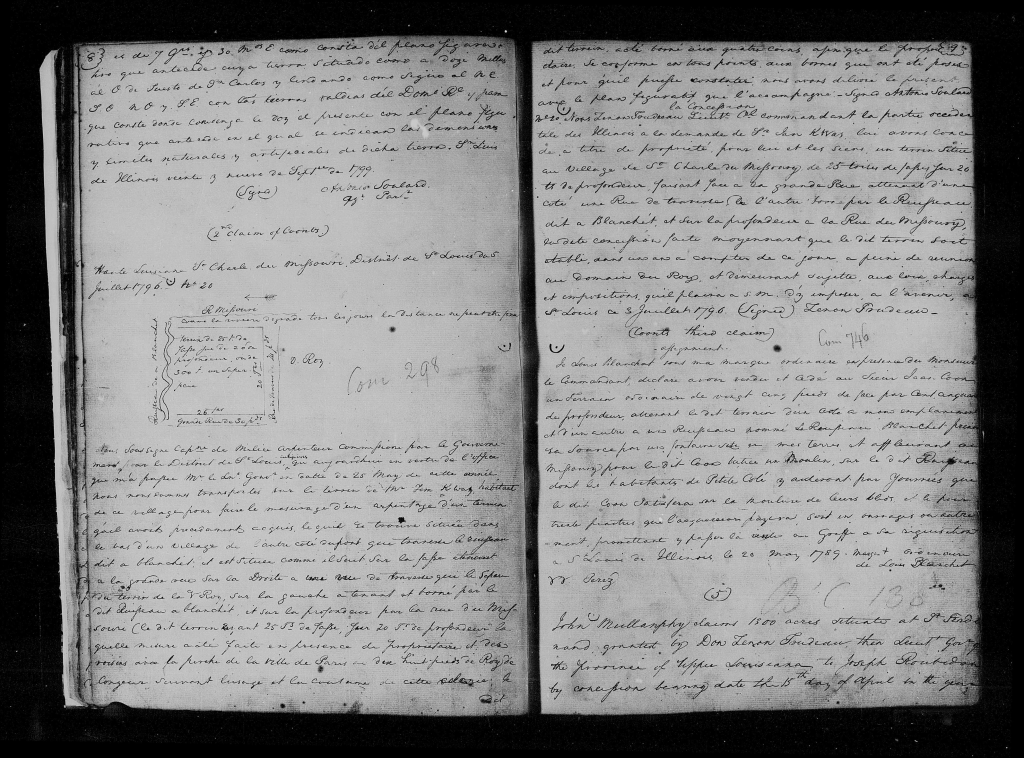 83
es de 7 Grs. 30. Ms E como consta del plano figurativo
que antecede cuya tierra situado como a doze Millas
al O de Sueste de Sn Carlos y lindando como sigue al N E
S O N O y S E con tas tierras valdias del Domo Rl y para
que conste donde convenga le doy el presente con el plano figu
rativo que antecede en el qual se indican las dimensiones
y limites naturales y artificiales de dicha tierra. Sn Luis
de Illinois veinte y nueve de Septre de 1799
(Signe) Antonio Soulard
Agr. Parr.
(2nd Claim of Coontz)
Haute Louisiane St Charle du Missouri, District de St Louis du 5
Juillet 1796 No 20
R Missouri
terrein de 25 ts de
300 t. en Super
O. Roy
Com 298
25 tes
Grande Rue de
Ruisseau a Blanchet
Nous Soussigne Capne de Milice Arpenteur Commissione par le Gouverne
ment pour le District de St Louis, que aujourdhui en vertu de l'office
que m'a passe Mr le Lnt Gouvr en date de 20 May de cette année
nous nous sommes transportes sur le terrein de Mr Jon Kway habitant
de ce village pour faire le mesurage d'un arpentage d'un terrein
quel avoit precidament acquis, lequel se trouve Situee dans
le bas d'un village de l'autre coté du pont que traverse le ruisseau
dit a blanchet, et est Situee comme il suit sur la fasse
a la grande rue sur la Droite a une rue de traverse que le Separe
du terrein de la V Roy, sur la gauche a tenant et borné par le
dit Ruisseau a blanchit et sur la profondeur par la rue du Mis
souri (Ce dit terrein ayant 25 Ts de fasse, sur 20 Ts de profondeur la
quelle mesure a été faite en presence du Proprietaire et des
voisins avec la perche de la Ville de Paris en dix huit pieds de Roy de
Longeur suivant l'usage et la coutume de cette colonie, le
dit
dit terrein, a été borné aux quatre coins, afin que le proprie
taire, se conforme en tous points aux bornes qui ont été posés
et pour quil puisse constater nous avons delivré le present
avec le plan figuratif qui l'accompagne - Signe Antonio Soulard
la Concession
No 20 Nous Zenon Trudeau Lieutt Cl commandant la partie occiden
tale des Illinois a la demande de Sr Jon Kway, lui avons conce
de, a titre de proprieté, pour lui et les Siens, un terrein Situé
au Village de St Charle du Missoury de 25 toises de fasse sur 20
ts de profondeur faisant face a la grande Rue, attenant d'une
coté une Rue de traverse & de l'autre borné par le Ruisseau
dit a Blanchet et sur la profondeur a la Rue du Missoury,
la dite concession faite moyennant que le dit terrein soit
etablie, dans un an a compter de ce jour, a peine de reunion
au Domaine du Roy, et demeurant sujette aux loix charges
et impositions, quil plaira a S. M. d'y imposer, a l'avenir, a
St Louis ce 3 Juillet 1796 (Signed) Zenon Trudeau.
(Coontz third claim)
assignment.
Com 746
Je Louis Blanchet sous ma marque ordinaire en presence du Monsieur
le Commandant, declare avoir vendu et cédé au Sieur Jaas. Coon
un Terrein ordinaire de vingt cinq pieds de face par Cent Cinquante
de profondeur, attenant le dit terrein d'un coté a mon emplacement
et d'un autre a un Ruisseau nommé le Ruisseau Blanchet prenant
sa Source par un fontaine sur mes terres et affluent au
Missoury pour le dit Coon batir un Moulin, sur le dit Ruisseau
dont les habitants de Petite Cote y auderont par journées que
le dit Coon Satisfera sur la mouture de leurs bleds et le prix
trente piastres que l'acquereur payera, soit en ouvrages ou autre
ment, promettant y passer la vente au Greffe a sa requisition
a St Louis de Illinois le 20 May 1789. marque ordinaire
de Louis Blanchet
Perez
(5)
B C 138
John Mullanphy claims 1800 acres Situate at St Ferdi
nand granted by Don Zenon Trudeau then Lieut Govr of
the Province of Upper Louisiana to Joseph Roubidou
by concession bearing date the 15th day of April in the year